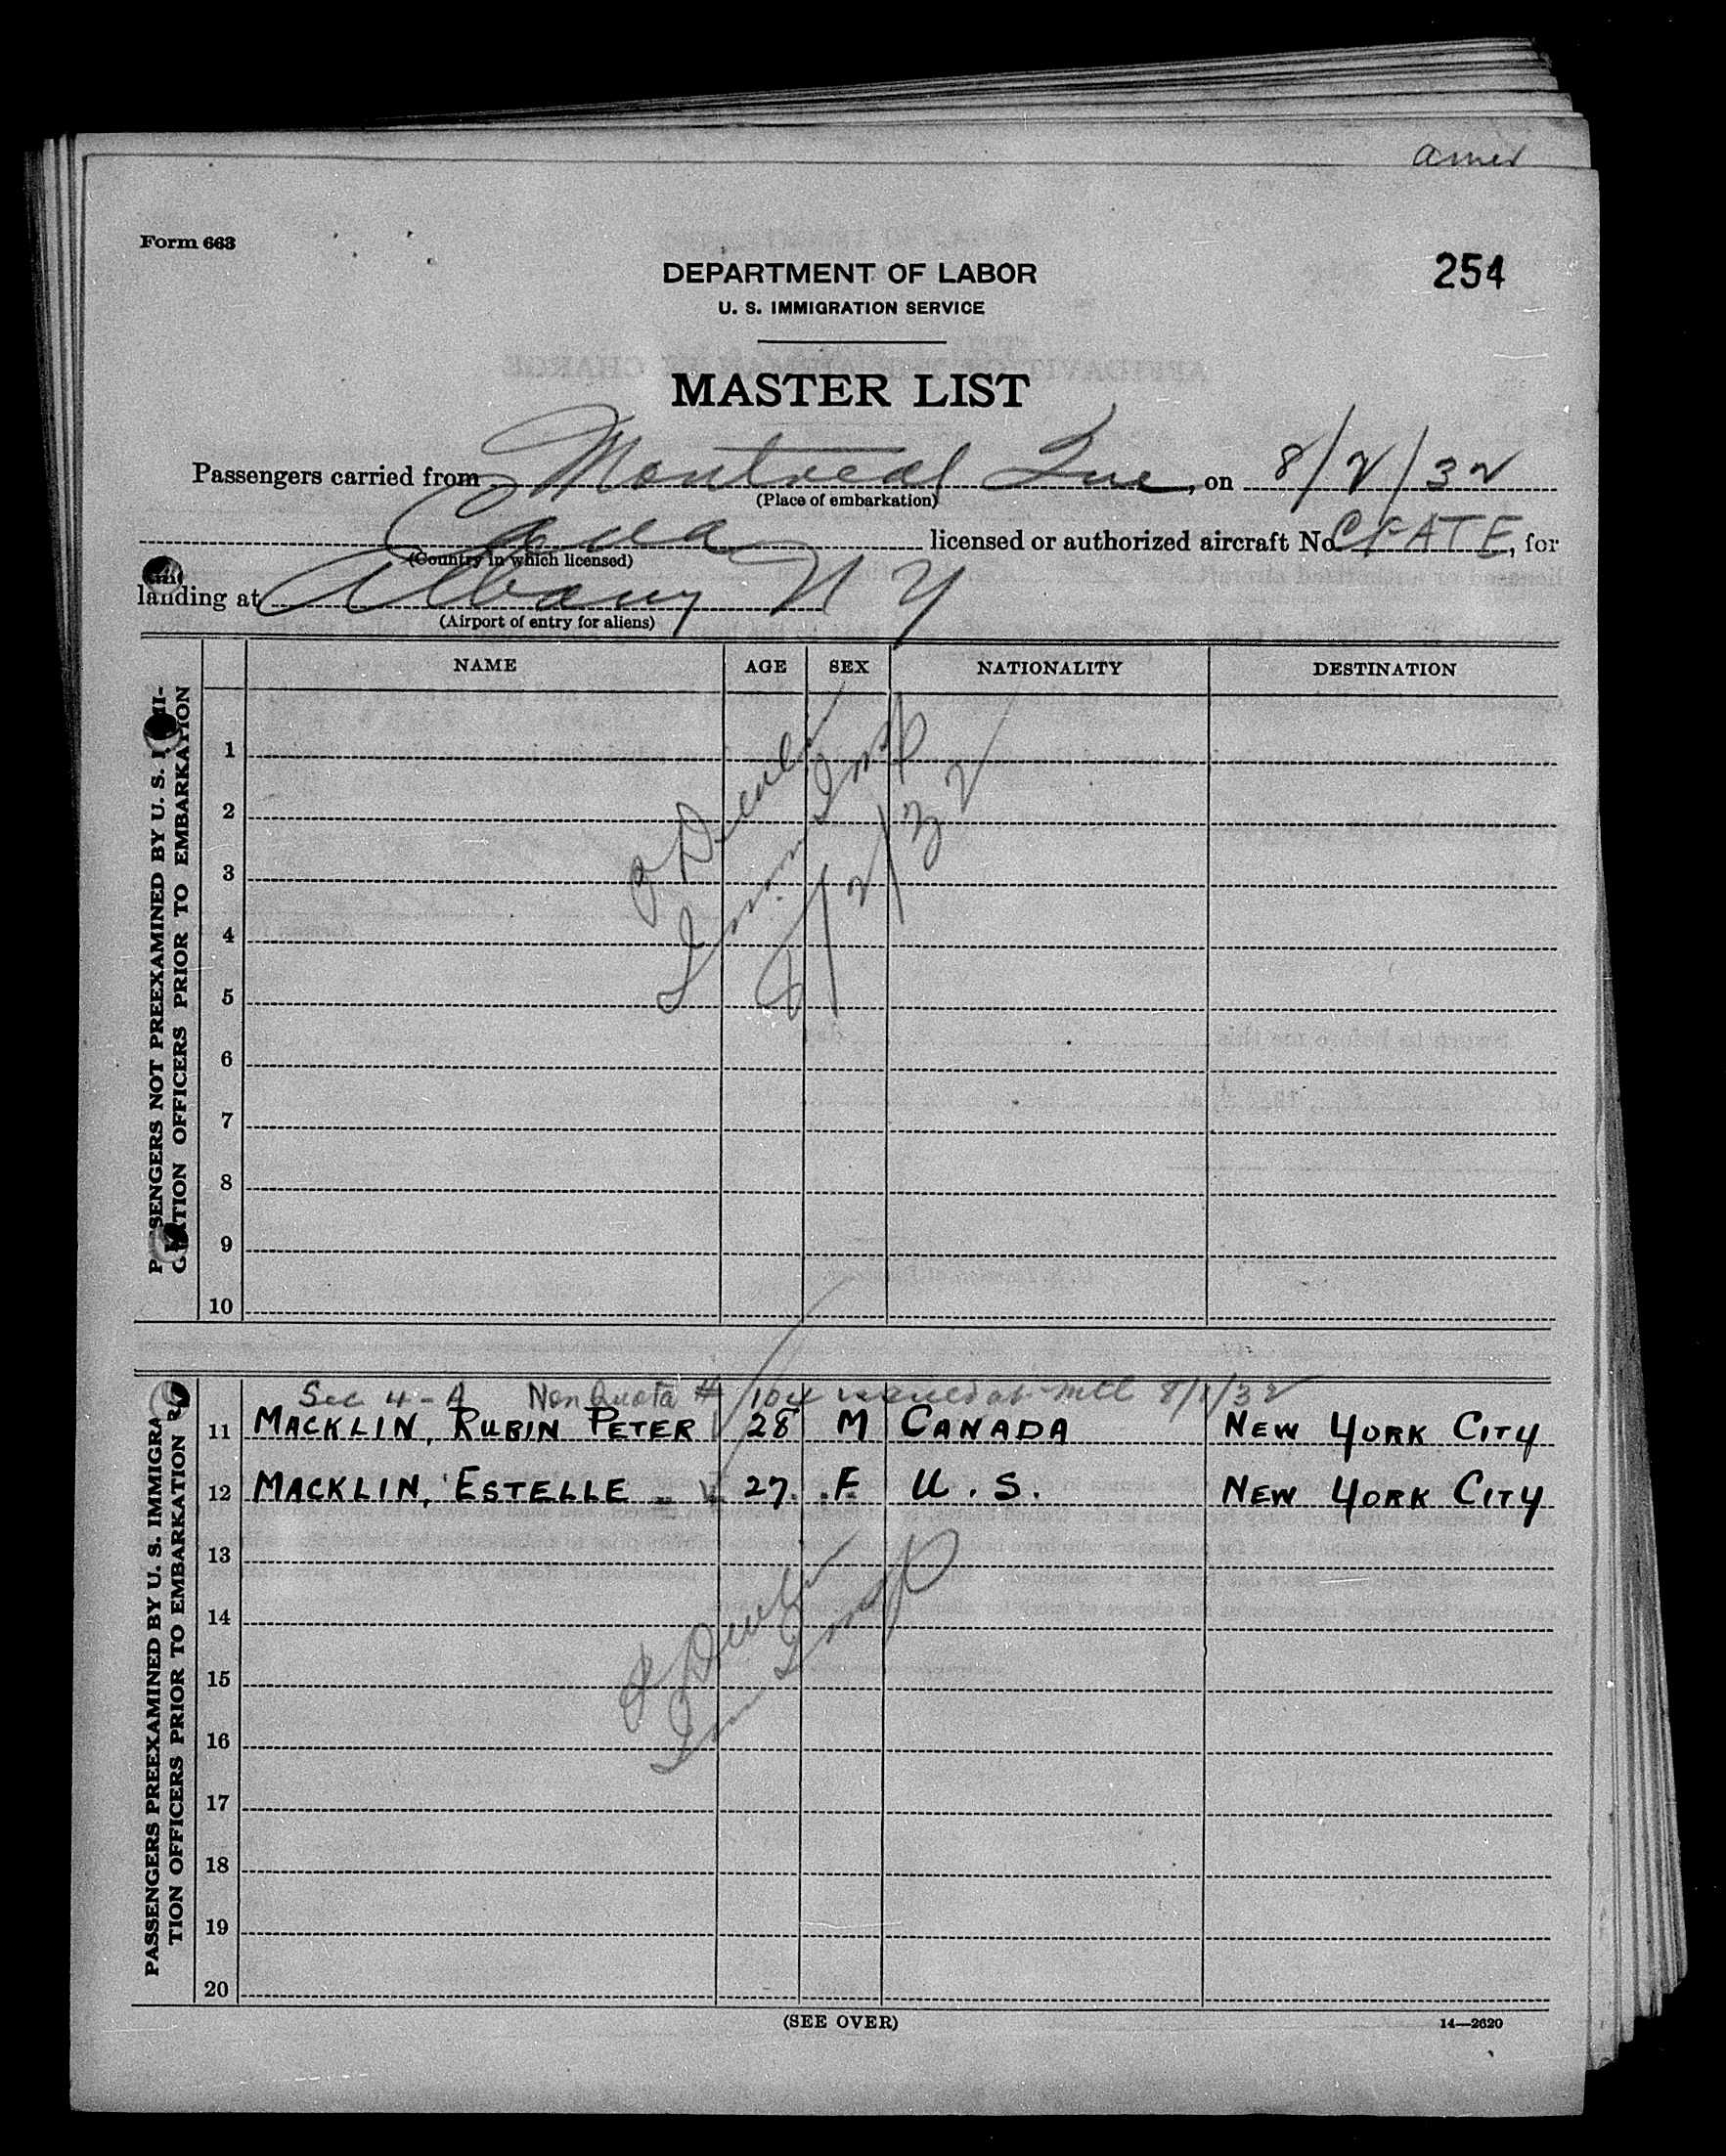 Amer
Form 663
254
DEPARTMENT OF LABOR
U. S. IMMIGRATION SERVICE
MASTER LIST
Passengers carried from Montreal Que, on 8/2/32
(Place of embarkation)
Cada licensed or authorized aircraft No. CFATE, for
(Country in which licensed)
landing at Albany N Y
(Airport of entry for aliens)
NAME AGE SEX NATIONALITY DESTINATION
PASSENGERS NOT PREEXAMINED BY U. S. IMMI-
GRATION OFFICERS PRIOR TO EMBARKATION
1
2
3
4
5
6
7
8
9
10
Imm Insp
8/2/32
PASSENGERS PREEXAMINED BY U. S. IMMIGRA
TION OFFICERS PRIOR TO EMBARKATION
Sec 4-A Non Quota # 104 issued at Mtl 8/1/32
11 MACKLIN, RUBIN PETER 28 M CANADA NEW YORK CITY
12 MACKLIN, ESTELLE 27 F U. S. NEW YORK CITY
13
14
15
16
17
18
19
20
Imm Insp
(SEE OVER)
14—2620